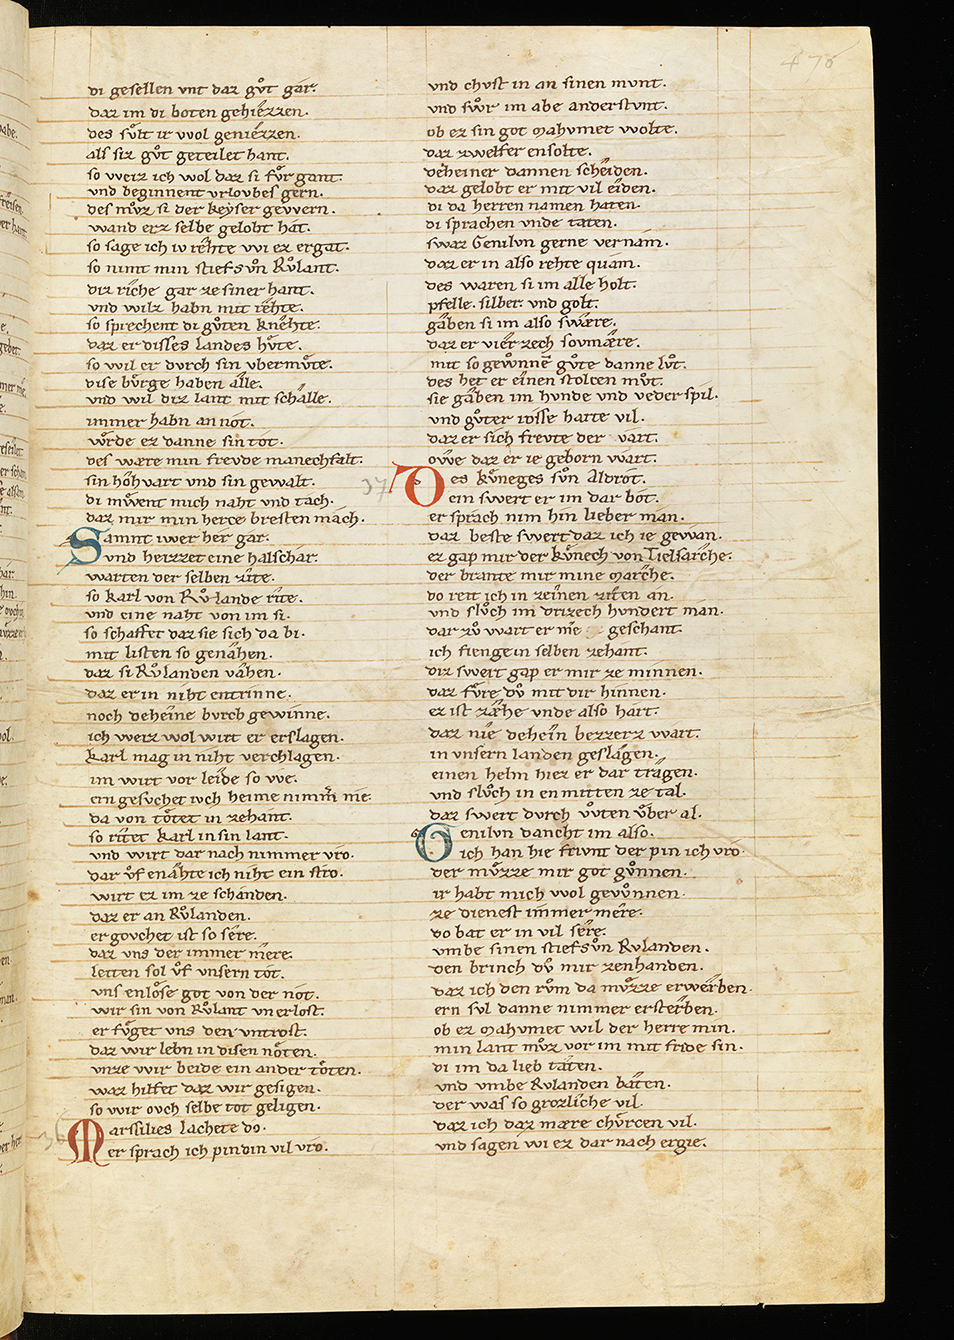 476
di gesellen unt daz gůt gar.
daz im di boten gehiezzen.
des sůlt ir wol geniezzen.
als siz gůt geteilet hant.
so weiz ich wol daz si fůr gant.
und beginnent urloubes gern.
des můz si der keyser gewern.
wand erz selbe gelobt hat.
so sage ich iv rehte wi ez ergat.
so nimt min stiefsůn Růlant.
diz riche gar ze siner hant.
und wilz habn mit rehte.
so sprechent di gůten knehte.
daz er disses landes hůte.
so wil er durch sin ubermůte.
dise bůrge haben alle.
und wil diz lant mit schalle.
immer habn an not.
wůrde ez danne sin tot.
des wære min freude manechfalt.
sin hohvart und sin gewalt.
di můent mich naht und tach.
daz mir min herce bresten mach.
Samnt iwer her gar.
und heizzet eine halschar.
warten der selben zite.
so karl von Růlande rite.
und eine naht von im si.
so schaffet daz sie sich da bi.
mit listen so genahen.
daz si Růlanden vahen.
daz er in niht entrinne.
noch deheine burch gewinne.
ich weiz wol wirt er erslagen.
karl mag in niht verchlagen.
im wirt vor leide so we.
ern gesuchet ivch heime nimmer me.
da von tôtet in zehant.
so ritet karl in sin lant.
und wirt dar nach nimmer vro.
dar ůf enahte ich niht ein stro.
wirt ez im ze schanden.
daz er an Růlanden.
ergouchet ist so sere.
daz uns der immer mere.
leiten sol ůf unsern tot.
uns enlôse got von der not.
wir sin von Růlant unerlost.
er fůget uns den untrost.
daz wir lebn in disen nôten.
unze wir beide ein ander tôten.
waz hilfet daz wir gesigen.
so wir ouch selbe tot geligen.
36
Marssilies lachete do.
er sprach ich pin din vil vro.
und chust in an sinen munt.
und swůr im abe anderstunt.
ob ez sin got mahumet wolte.
daz zwelfer ensolte.
deheiner dannen scheiden.
daz gelobt er mit vil eiden.
di da herren namen haten.
di sprachen unde taten.
swaz Genilun gerne vernam.
daz er in also rehte quam.
des waren si im alle holt.
pfelle. silber und golt.
gaben si im also swære.
daz er vierzech soumære.
mit so gewunne gůte danne lůt.
des het er einen stolcen můt.
sie gaben im hunde und vederspil.
und gůter rosse harte vil.
daz er sich freute der vart.
owe daz er ie geborn wart.
37
Des kůneges sůn Aldrot.
ein swert er im dar bot.
er sprach nim hin lieber man.
daz beste swert daz ich ie gewan.
ez gap mir der kůnech von Tielsarche.
der brante mir mine marche.
do reit ich in zeinen ziten an.
und slůch im drizech hundert man.
dar zů wart er nie geschant.
ich fieng in selben zehant.
diz swert gap er mir ze minnen.
daz fůre dů mit dir hinnen.
ez ist zæhe unde also hart.
daz nie dehein bezzerz wart.
in unsern landen geslagen.
einen helm hiez er dar tragen.
und slůch in enmitten ze tal.
daz swert durch ůten ůber al.
Genilun dancht im also.
ich han hie friunt der pin ich vro.
der můzze mir got gůnnen.
ir habt mich wol gewůnnen.
ze dienest immer mere.
do bat er in vil sere.
umbe sinen stiefsůn Rulanden.
den brinch dů mir zenhanden.
daz ich den rům da můzze erwerben.
ern sul danne nimmer ersterben.
ob ez mahumet wil der herre min.
min lant můz vor im mit fride sin.
di im da lieb taten.
und umbe Rulanden baten.
der was so grozliche vil.
daz ich daz mære chůrcen vil.
und sagen wi ez dar nach ergie.